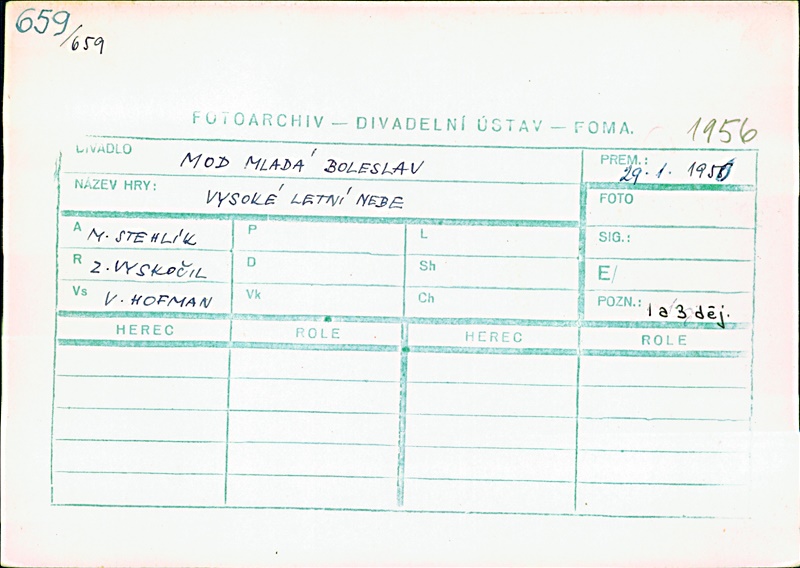 659
/659
FOTOARCHIV — DIVADELNÍ ÚSTAV — FOMA.
1956
DIVADLO MOD MLADÁ BOLESLAV
PREM.: 29.1.
NÁZEV HRY: VYSOKÉ LETNÍ NEBE
FOTO
A M. STEHLÍK
P
L
SIG.:
R Z. VYSKOČIL
D
Sh
E/
Vs V. HOFMAN
Vk
Ch
POZN.: 1 a 3 děj.
HEREC ROLE HEREC ROLE